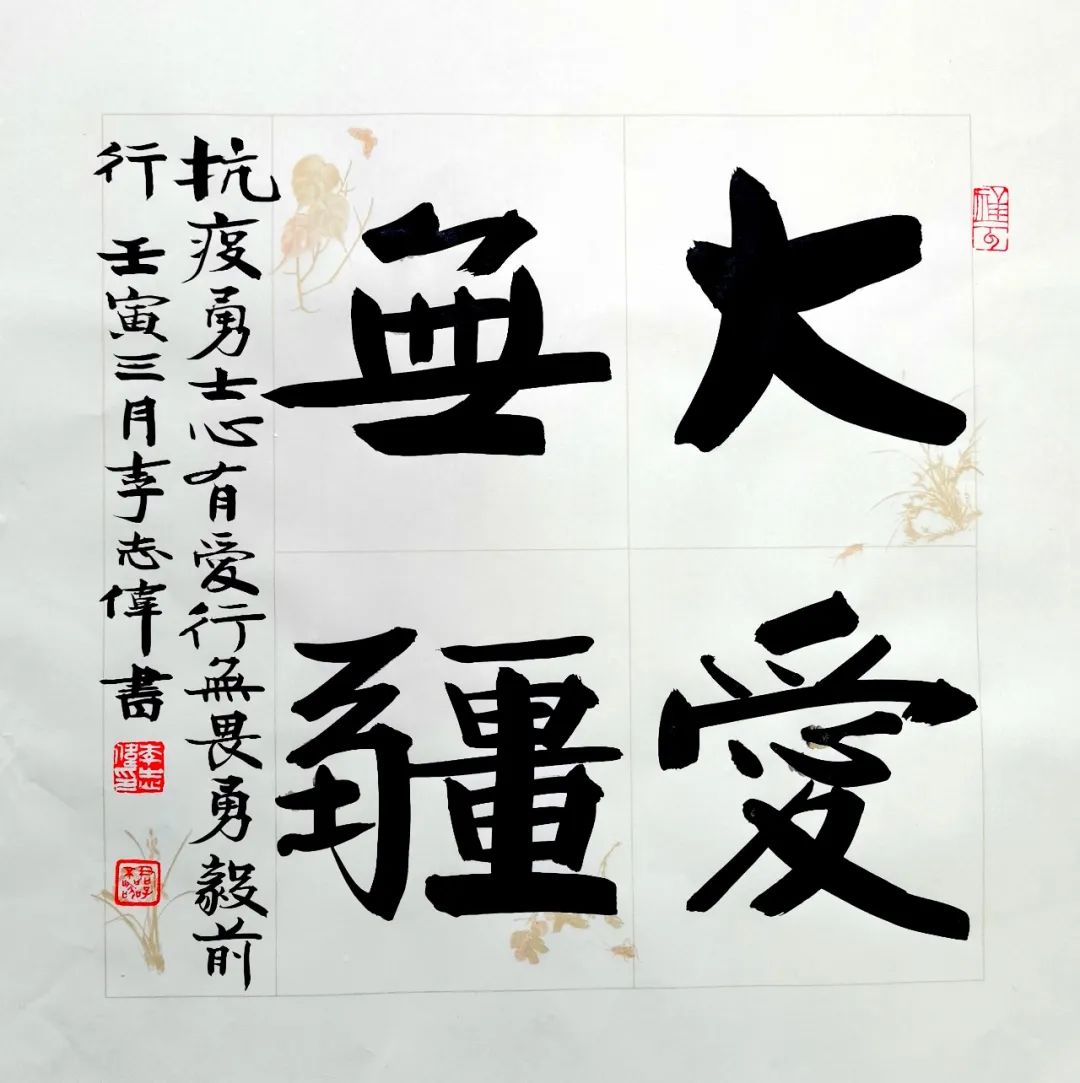 大愛
無疆
抗疫勇士心有愛行無畏勇毅前
行 壬寅三月李志偉書
李志
偉印